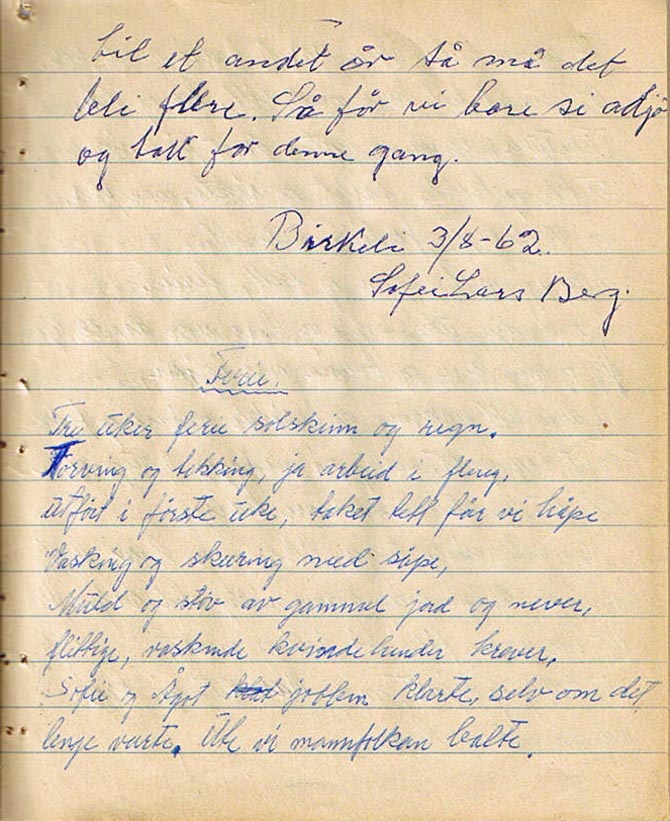 til et andet år så må det
bli flere. Så får vi bare si adjø
og takk for denne gang.
Birkeli 3/8-62.
Sofie Lars Berg.
Ferie.
Tre uker ferie solskinn og regn.
Torving og tekking, ja arbeid i fleng,
utført i første uke, taket tett får vi håpe
Vasking og skuring med såpe,
Muld og støv av gammel jord og never,
flittige, vaskende kvindehender krever,
Sofie og Ågot jobben klarte, selv om det
lenge varte. Ute vi mannfolkan